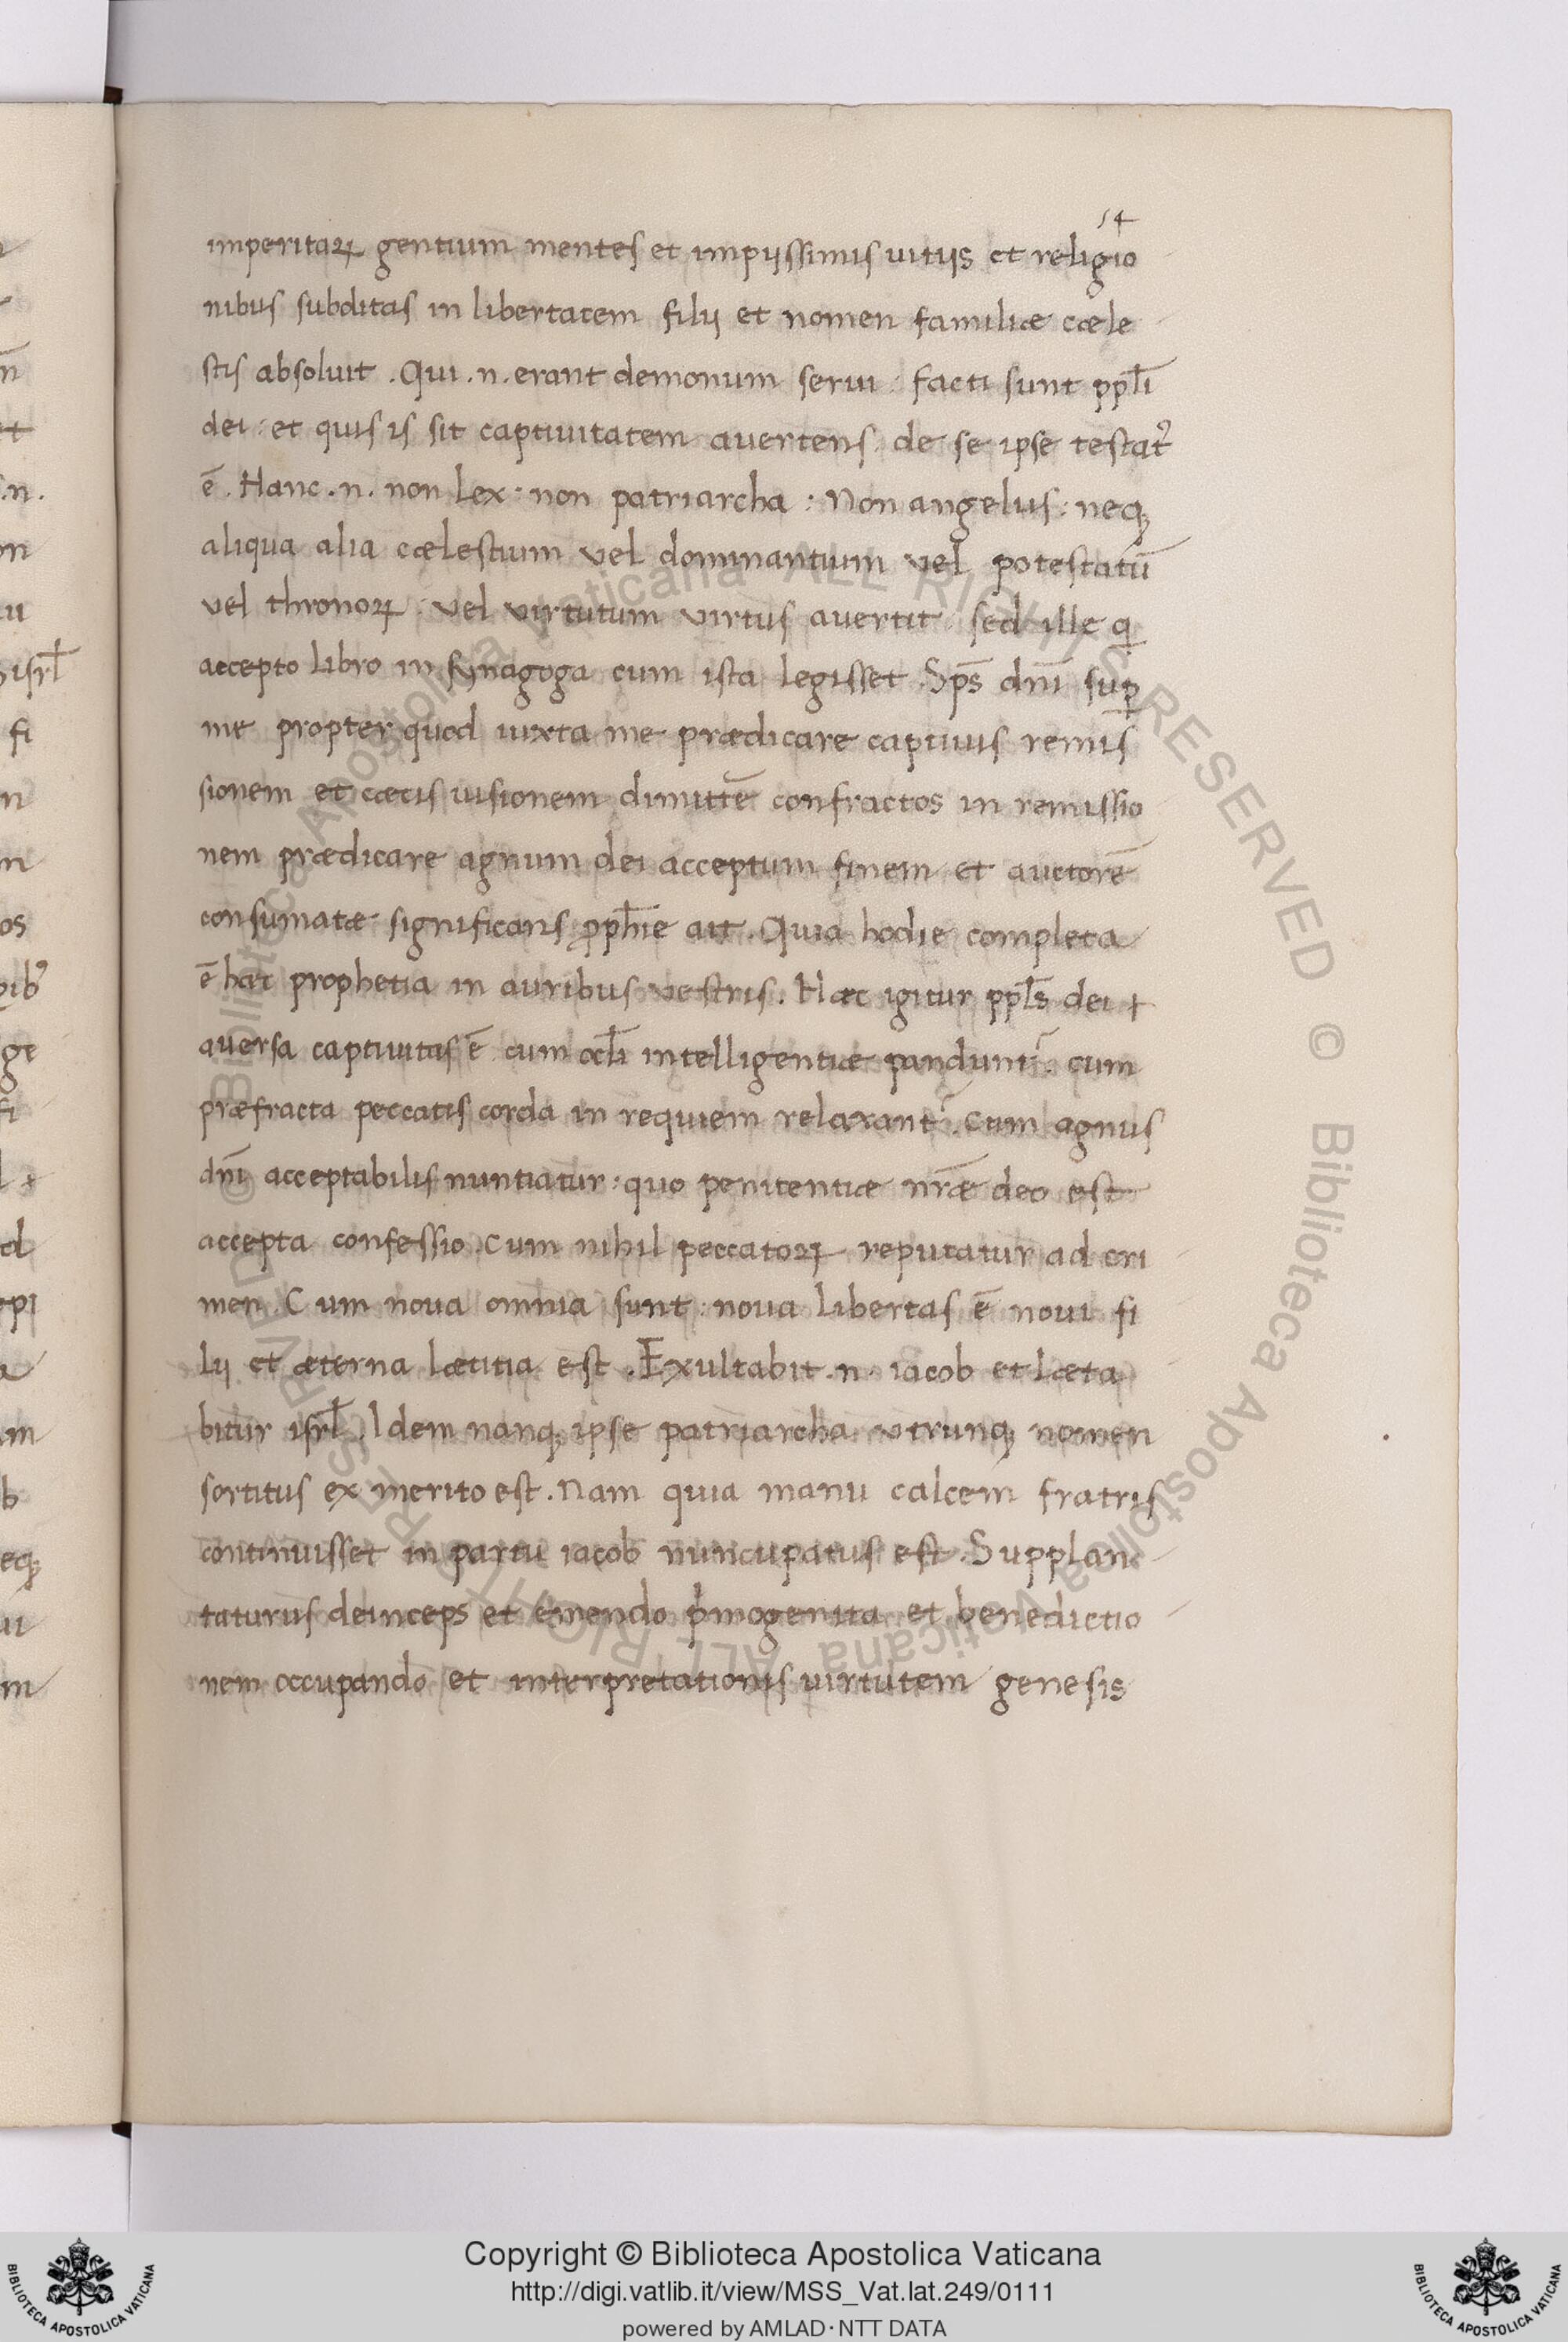 54
imperitaꝝ gentium mentes et impijssimis uitijs et religio
nibus subditas in libertatem filij et nomen familiæ cæle
stis absoluit . Qui .n. erant demonum serui : facti sunt ppl̄i
dei : et quis is sit captiuitatem auertens de se ipse testat᷑
ē . Hanc .n. non Lex : non patriarcha : Non angelus : neqꝫ
aliqua alia cælestium vel dominantium vel potestatū
vel thronoꝝ : vel virtutum virtus auertit sed ille q̱
accepto libro in synagoga cum ista legisset . Sp̄s dn̄i suꝑ
me propter quod iuxta me prædicare captiuis remis
sionem et cæcis uisionem dimittē confractos in remissio
nem prædicare agnum dei acceptum finem et auctorē
consumatæ significans ꝓph̄ie ait . Quia hodie completa
ē hæc prophetia in auribus vestris . Hæc igitur ppl̄s dei +
aversa captiuitas ē cum ocl̄i intelligentiæ pandunt᷑ . cum
præfracta peccatis corda in requiem relaxant᷑ . Cum agnus
dn̄i acceptabilis nuntiatur : quo penitentiæ nr̄æ deo est
accepta confessio . Cum nihil peccatoꝝ reputatur ad cri
men . Cum noua omnia sunt : noua libertas ē noui fi
lij et æterna lætitia est . Exultabit .n. iacob et læta
bitur isrl̄ . Idem nanqꝫ ipse patriarcha utrunqꝫ nomen
sortitus ex merito est . Nam quia manu calcem fratris
continuisset in partu iacob nuncupatus est . Supplan
taturus deinceps et emendo pͥmogenita et benedictio
nem occupando et interpretationis uirtutem genesis
Copyright © Biblioteca Apostolica Vaticana
http://digi.vatlib.it/view/MSS_Vat.lat.249/0111
powered by AMLAD·NTT DATA